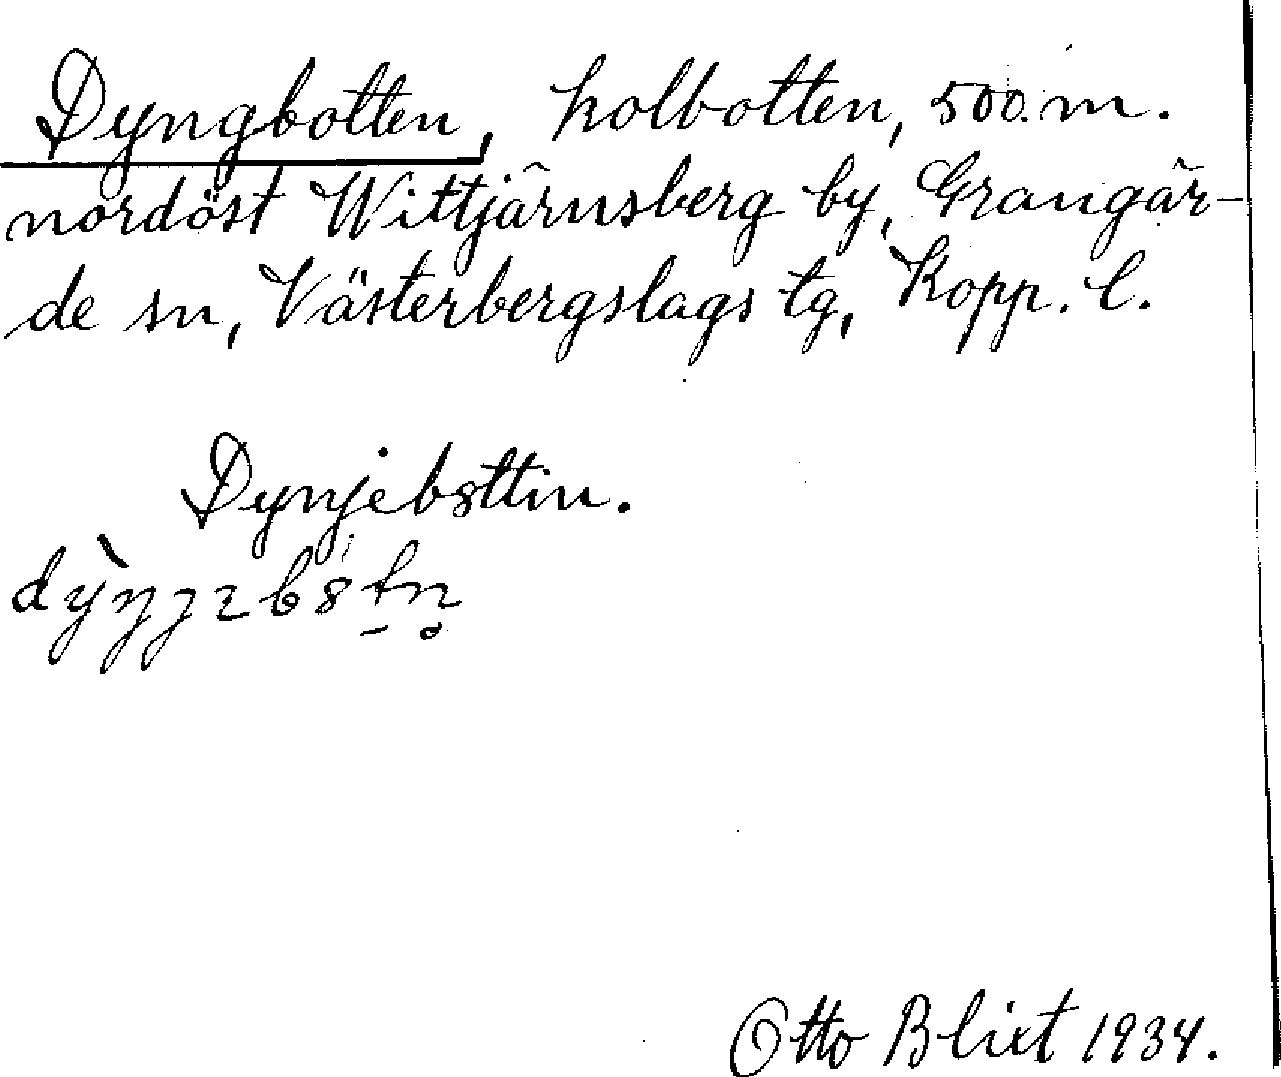 Dyngbotten, kolbotten, 500 m.
nordöst Wittjärnsberg by, Grangär-
de sn, Västerbergslags tg, Kopp. l.
Dynjebȣttin.
Otto Blixt 1934.